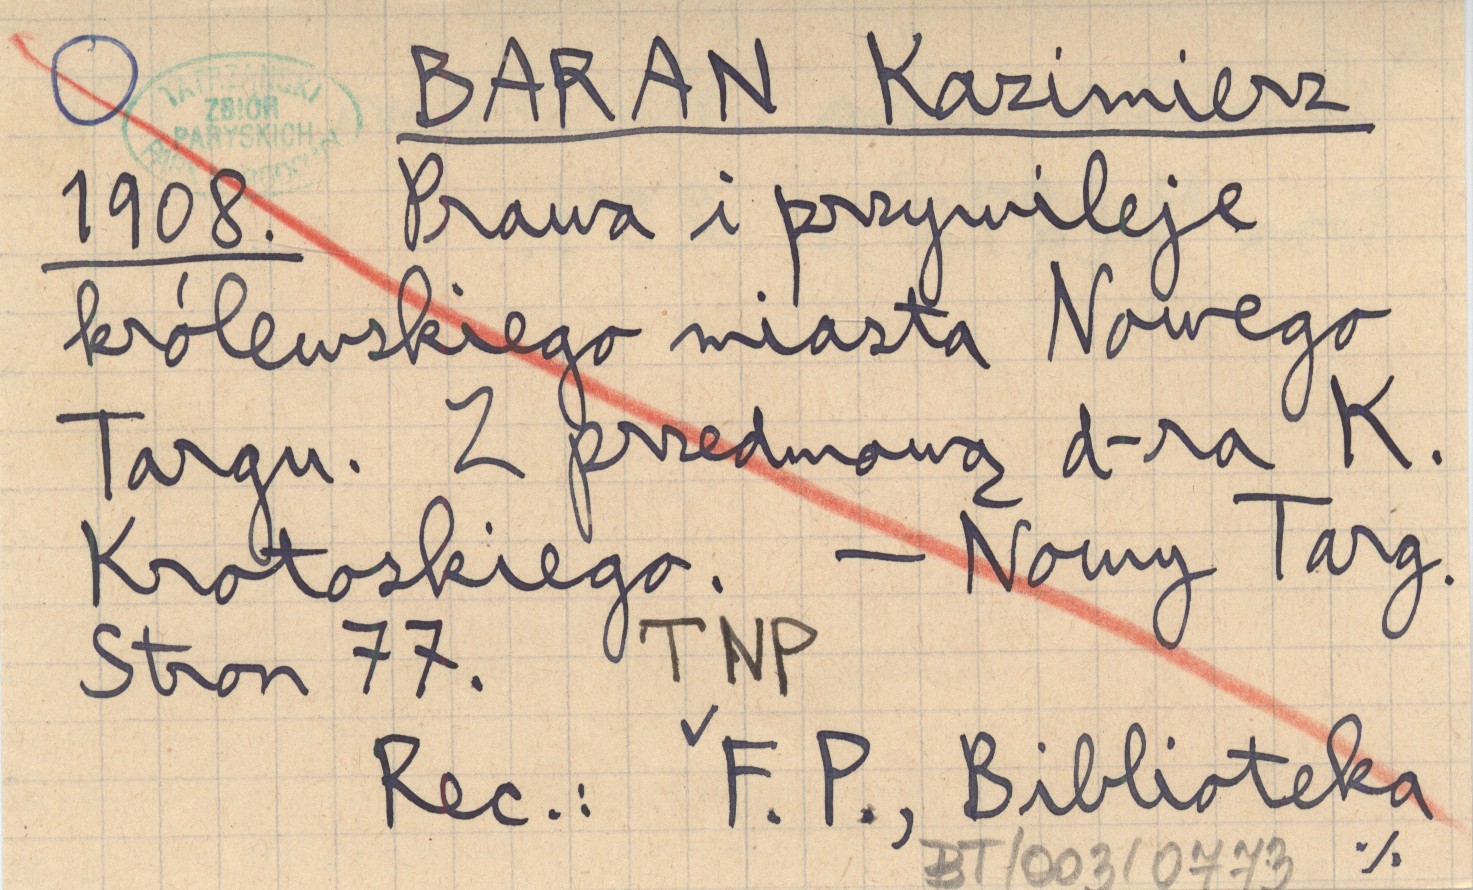 BARAN Kazimierz
TATRZAŃSKI
ZBIÓR
PARYSKICH
1908. Prawa i przywileje
królewskiego miasta Nowego
Targu. Z przedmową d-ra K.
Krotoskiego. — Nowy Targ.
Stron 77. TNP
Rec.: ✓ F. P., Biblioteka
BT/003/0773 ·/.